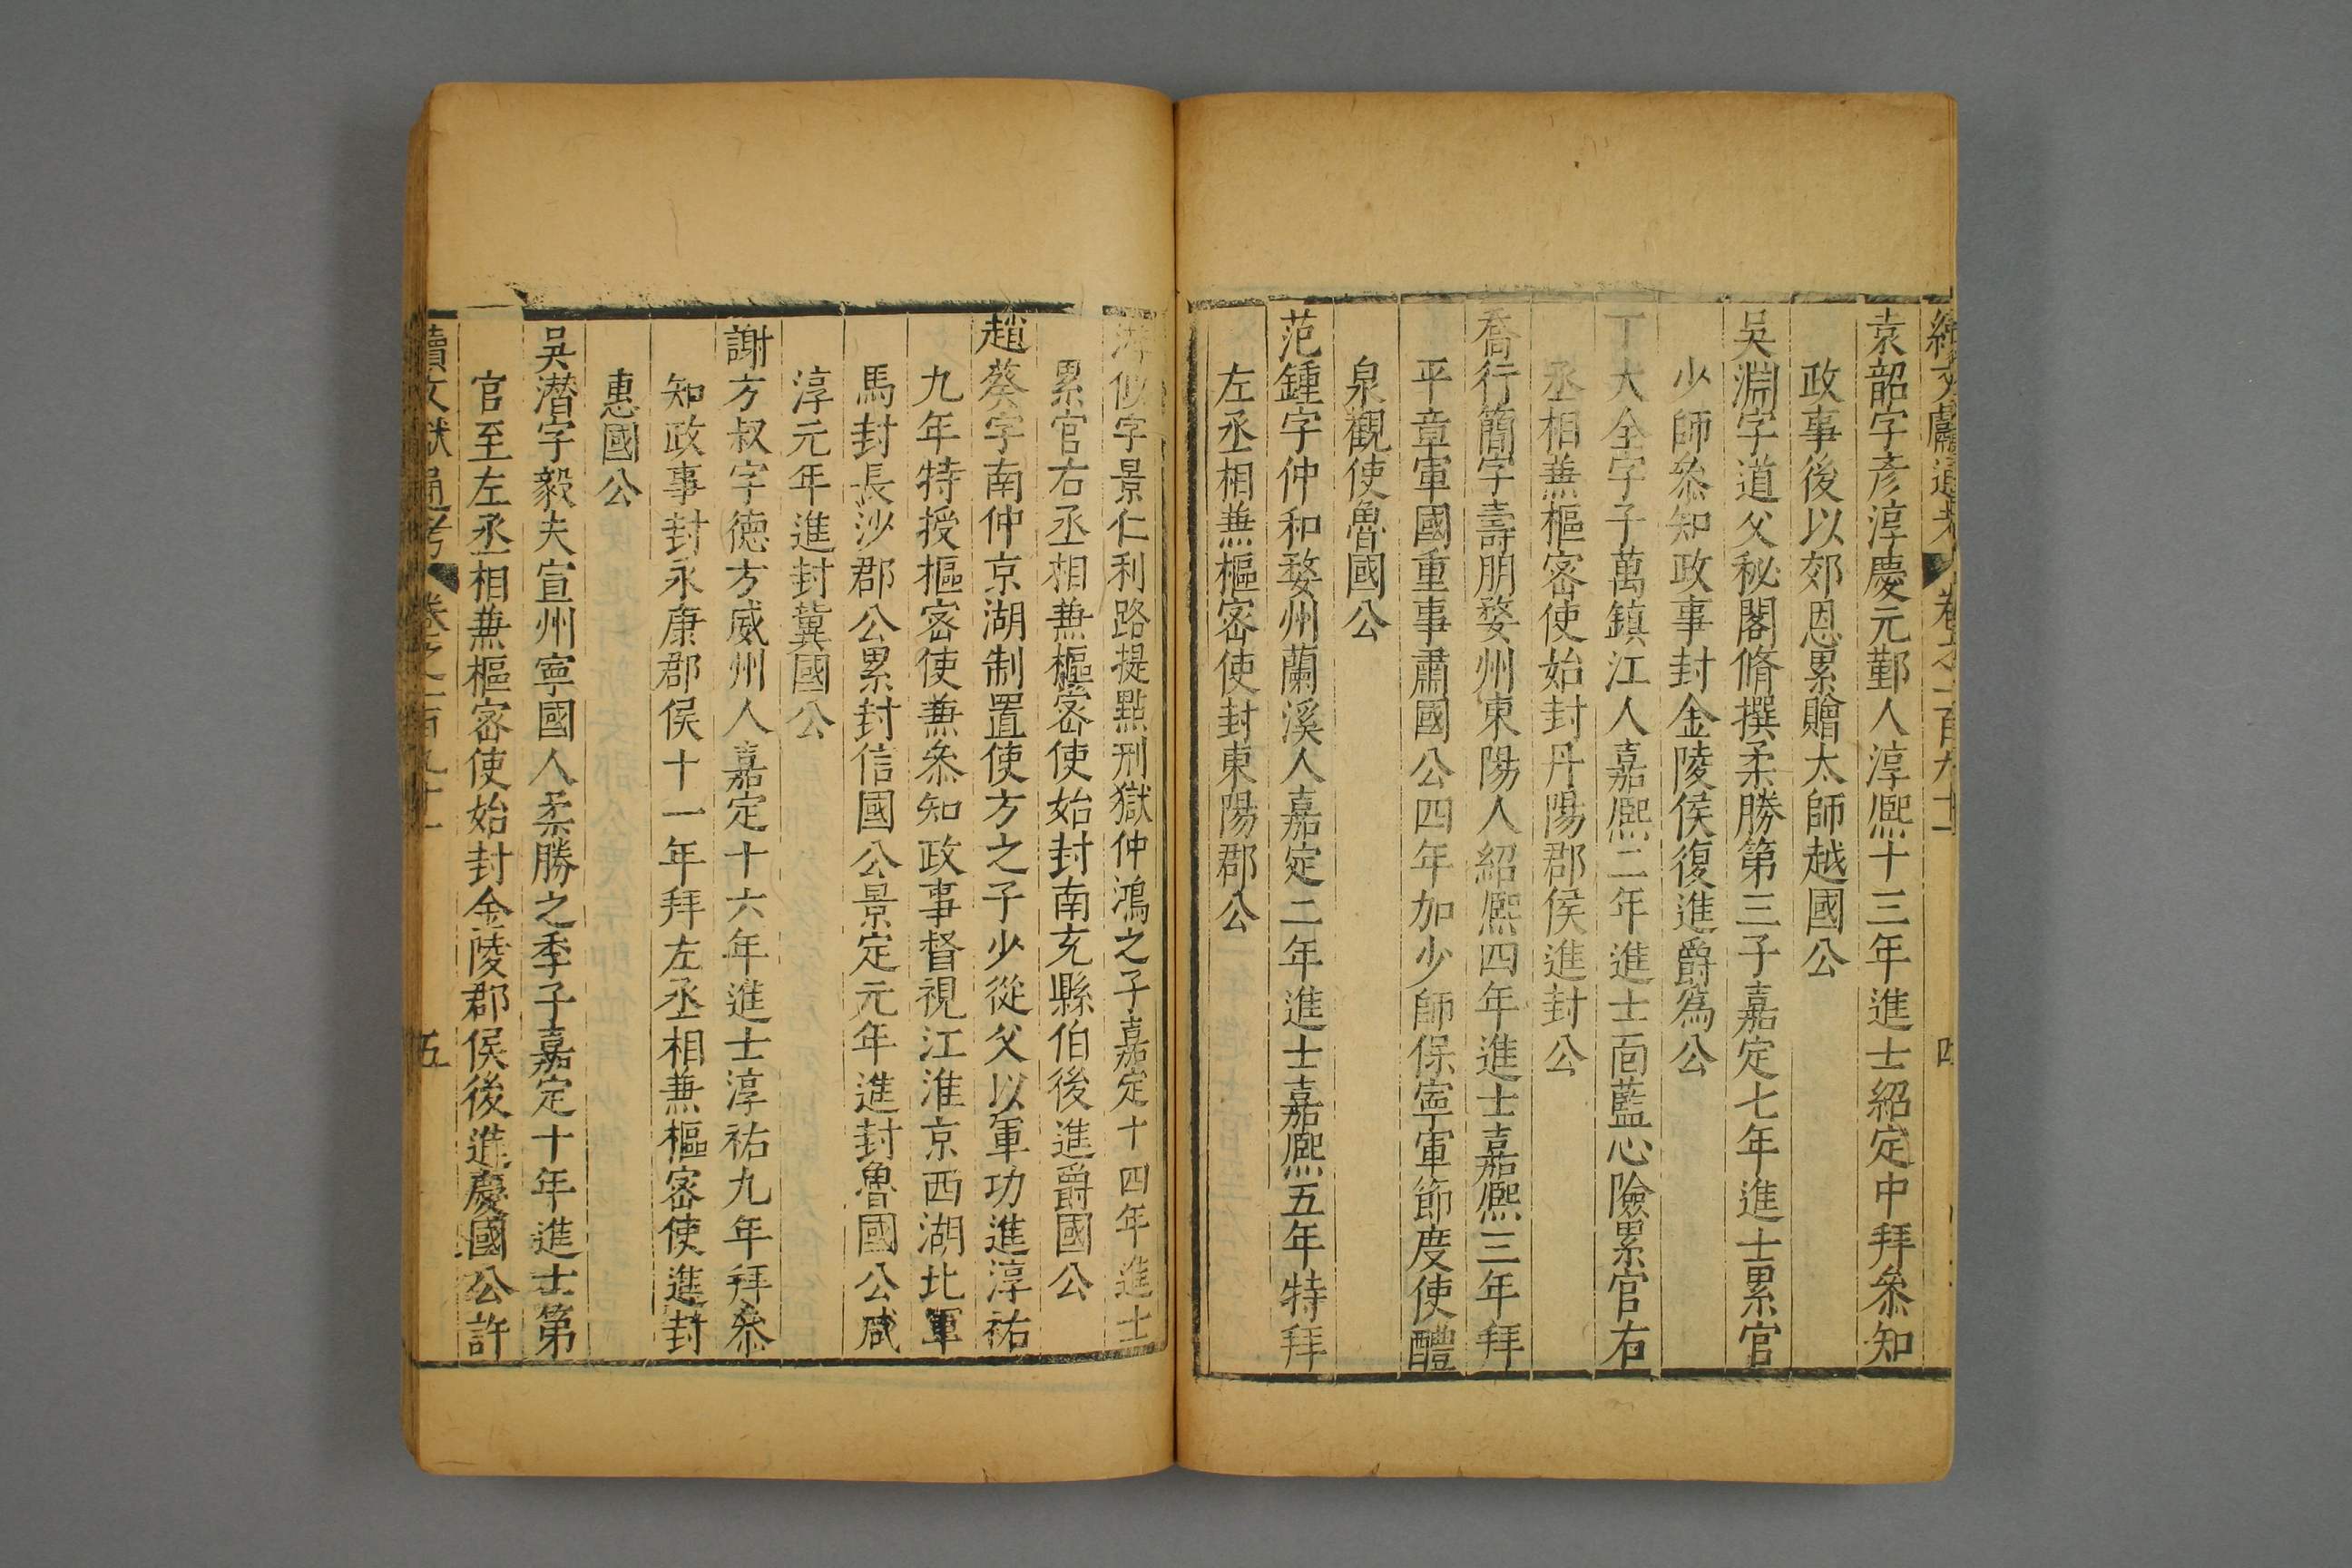 續文獻通考 卷之一百九十一 四
袁韶字彥淳慶元鄞人淳熈十三年進士紹定中拜叅知
政事後以郊恩累贈太師越國公
吳淵字道父秘閣脩撰柔勝第三子嘉定七年進士累官
少師叅知政事封金陵侯復進爵爲公
丁大全字子萬鎮江人嘉熈二年進士面藍心險累官右
丞相兼樞宻使始封丹陽郡侯進封公
喬行簡字壽朋婺州東陽人紹熈四年進士嘉熈三年拜
平章軍國重事肅國公四年加少師保寧軍節度使醴
泉觀使魯國公
范鍾字仲和婺州蘭溪人嘉定二年進士嘉熈五年特拜
左丞相兼樞宻使封東陽郡公
游侣字景仁利路提點刑獄仲鴻之子嘉定十四年進士
累官右丞相兼樞宻使始封南充縣伯後進爵國公
趙葵字南仲京湖制置使方之子少從父以軍功進淳祐
九年特授樞宻使兼叅知政事督視江淮京西湖北軍
馬封長沙郡公累封信國公景定元年進封魯國公咸
淳元年進封冀國公
謝方叔字德方威州人嘉定十六年進士淳祐九年拜叅
知政事封永康郡侯十一年拜左丞相兼樞宻使進封
惠國公
吳潛字毅夫宣州寧國人柔勝之季子嘉定十年進士第
官至左丞相兼樞宻使始封金陵郡侯後進慶國公許
續文獻通考 卷之一百九十一 五